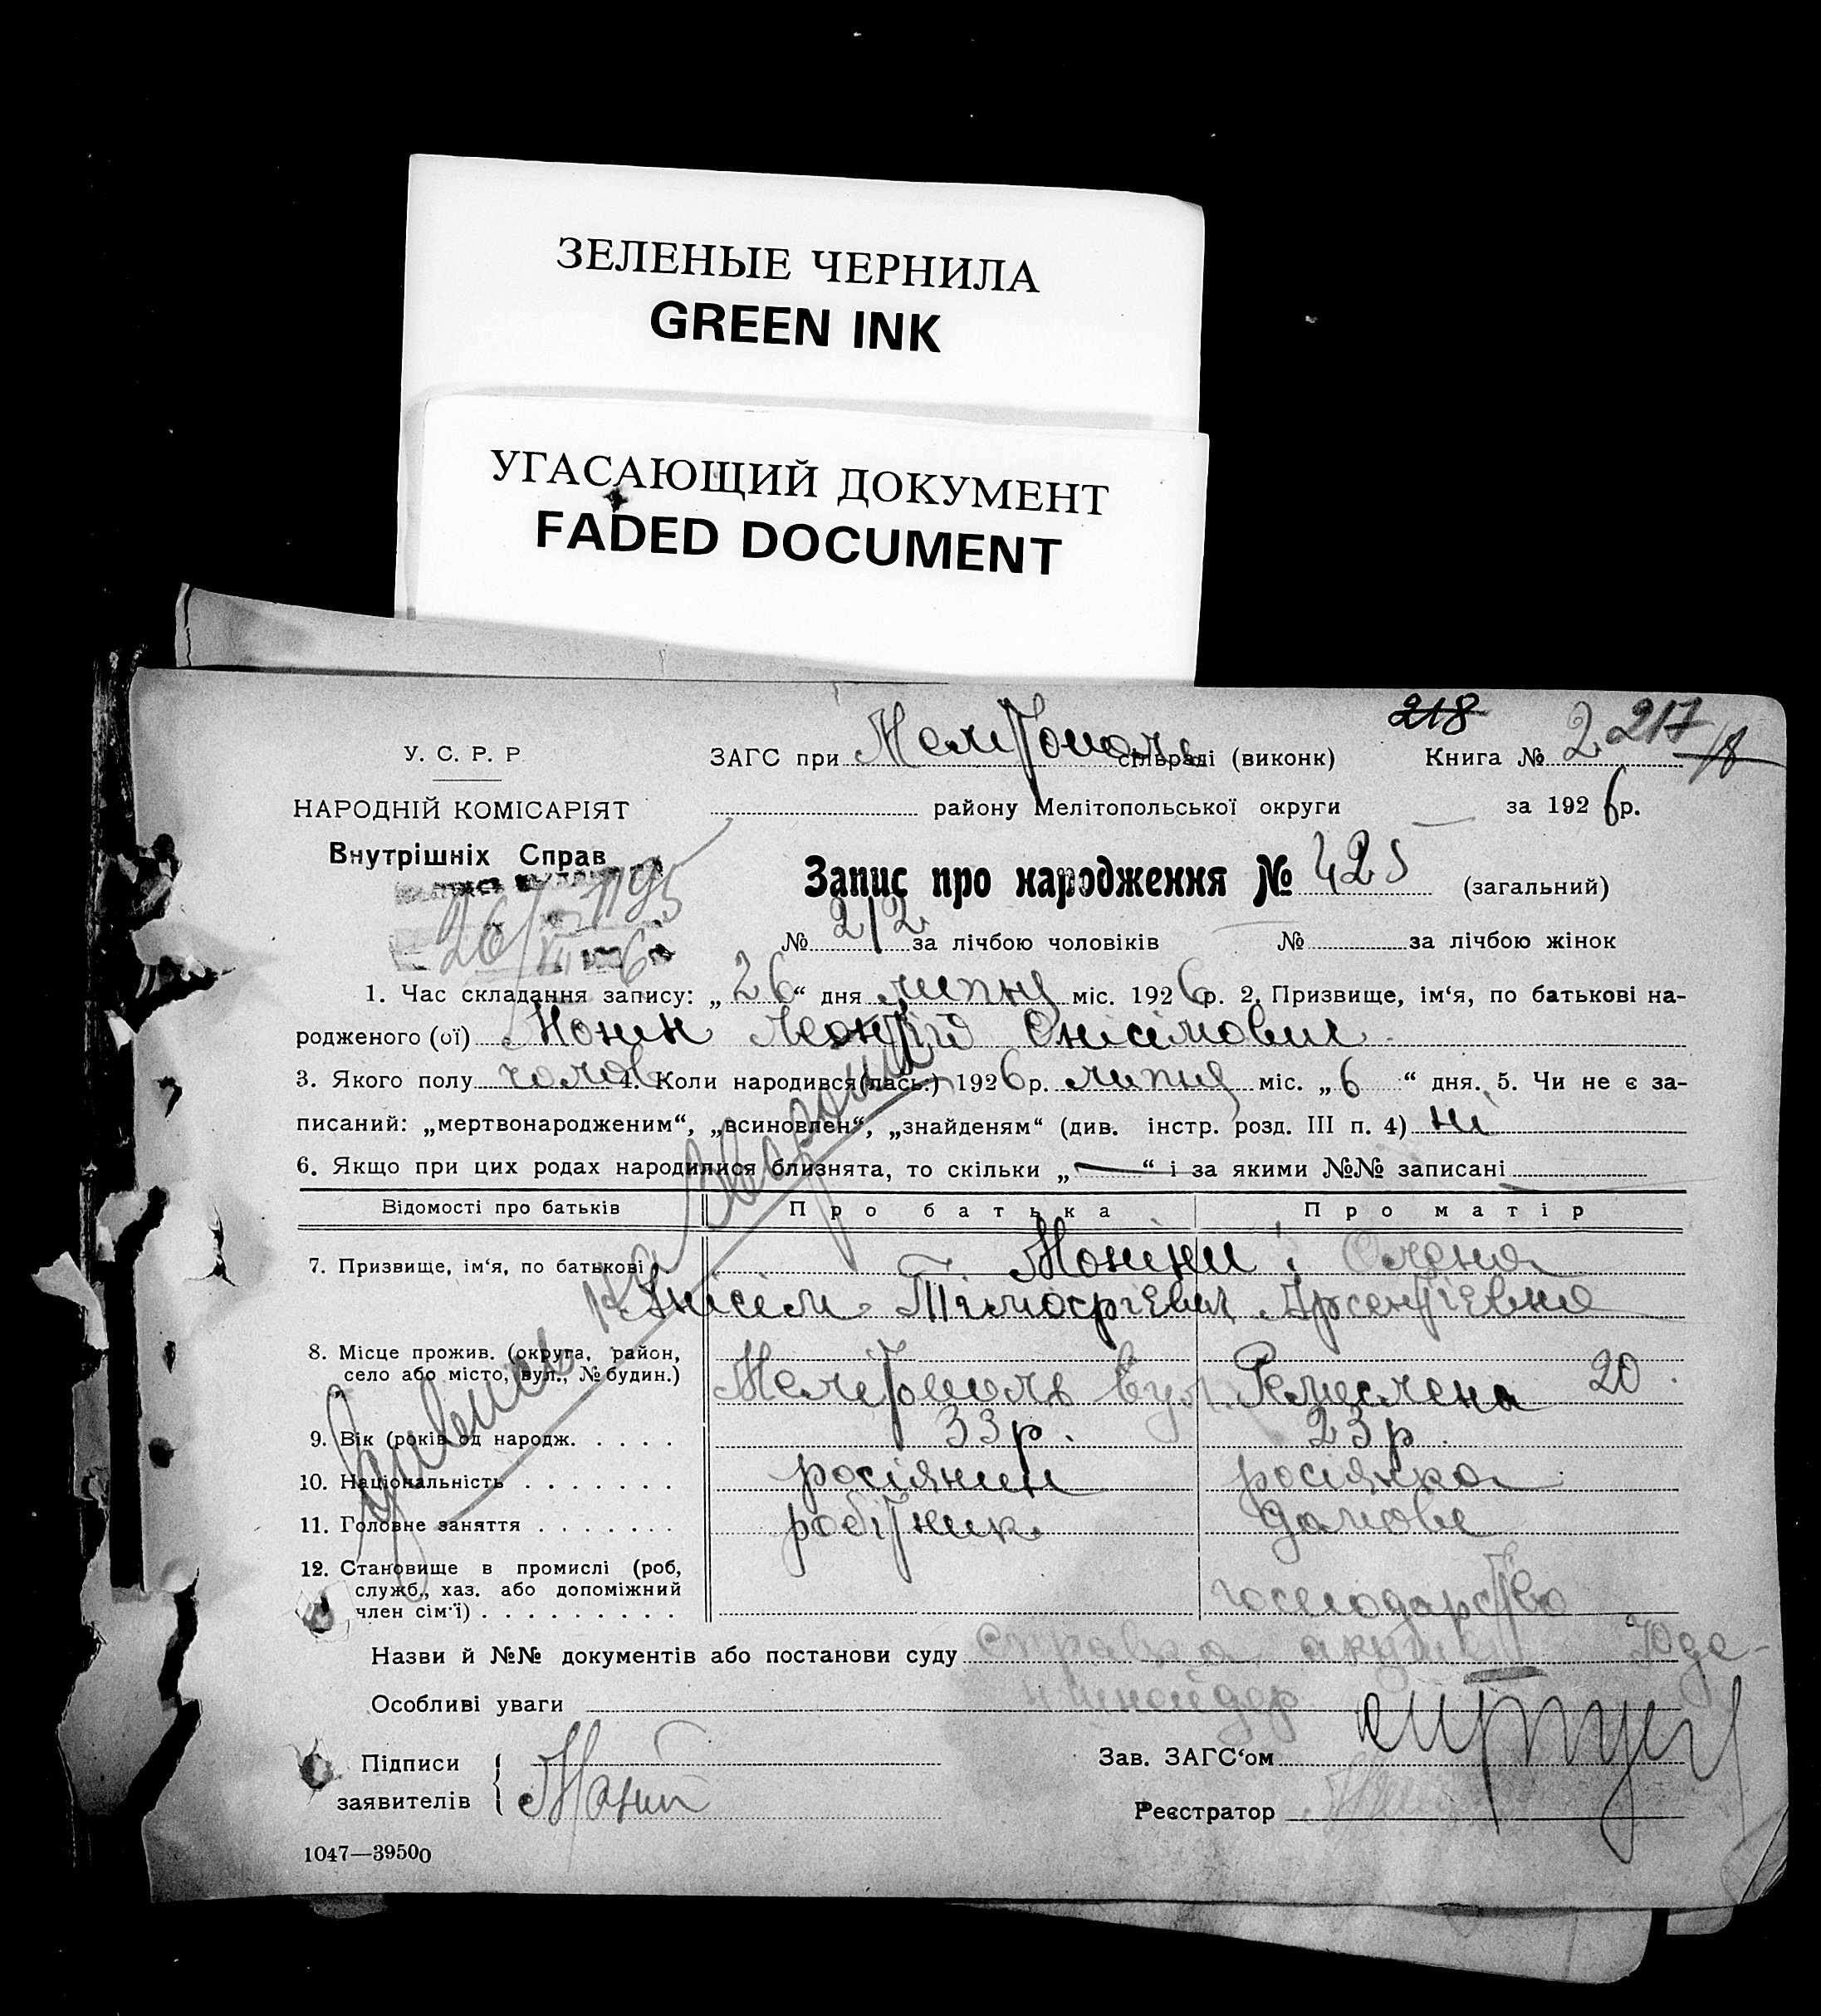 ЗЕЛЕНЫЕ ЧЕРНИЛА
GREEN INK
УГАСАЮЩИЙ ДОКУМЕНТ
FADED DOCUMENT
218 217
У. С. Р. Р. ЗАГС при Мелітополь сільраді (виконк) Книга № 2
НАРОДНІЙ КОМІСАРІЯТ района Мелітопольської округи за 1926 р.
Внутрішніх Справ
Запис про народження № 425 (загальний)
№ 212 за лічбою чоловіків № за лічбою жінок
1. Час складання запису: „26“ дня липня міс. 1926 р. 2. Призвище, ім‘я, по батькові на-
родженого (ої) Монін Леонтій Онісімович
3. Якого полу чолов 4. Коли народився(лась.) 1926 р. липня міс. „6“ дня. 5. Чи не є за-
писаний: „мертвонародженим“, „всиновлен“, „знайденям“ (див. інстр. розд. III п. 4) ні
6. Якщо при цих родах народилися близнята, то скільки „—“ і за якими №№ записані
Відомості про батьків Про батька Про матір
7. Призвище, ім‘я, по батькові Моніни і Олена
Онісім Тімофієвич Арсентіевна
8. Місце прожив. (округа, район,
село або місто, вул., № будин.) Мелітополь вул. Ремеслена 20
9. Вік (років од народж. 33 р. 23 р.
10. Національність росіянин росіянка
11. Головне заняття робітник домове
12. Становище в промислі (роб,
служб., хаз. або допоміжний господарство
член сім‘ї)
Назви й №№ документів або постанови суду справка
Особливі уваги
Підписи Зав. ЗАГС‘ом
заявителів Монин Реєстратор
1047—39500